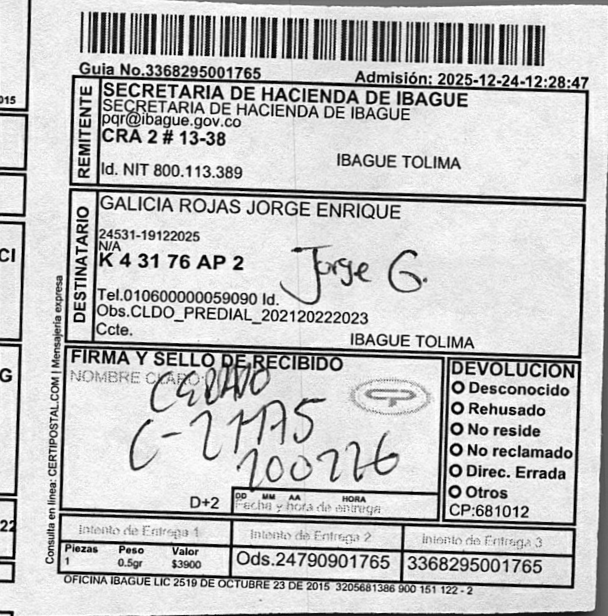 Guia No.3368295001765
Admisión: 2025-12-24-12:28:47
REMITENTE
SECRETARIA DE HACIENDA DE IBAGUE
SECRETARIA DE HACIENDA DE IBAGUE
pqr@ibague.gov.co
CRA 2 # 13-38
IBAGUE TOLIMA
Id. NIT 800.113.389
DESTINATARIO
GALICIA ROJAS JORGE ENRIQUE
24531-19122025
N/A
K 4 31 76 AP 2
Jorge G.
Tel.010600000059090 Id.
Obs.CLDO_PREDIAL_202120222023
Ccte.
IBAGUE TOLIMA
FIRMA Y SELLO DE RECIBIDO
NOMBRE CLARO:
200226
D+2
DD MM AA HORA
Fecha y hora de entrega
DEVOLUCION
Desconocido
Rehusado
No reside
No reclamado
Direc. Errada
Otros
CP:681012
Intento de Entrega 1
Intento de Entrega 2
Intento de Entrega 3
Piezas Peso Valor
1 0.5gr $3900
Ods.24790901765
3368295001765
OFICINA IBAGUE LIC 2519 DE OCTUBRE 23 DE 2015 3205681386 900 151 122 - 2
Consulta en línea: CERTIPOSTAL.COM | Mensajería expresa
015
CI
G
22